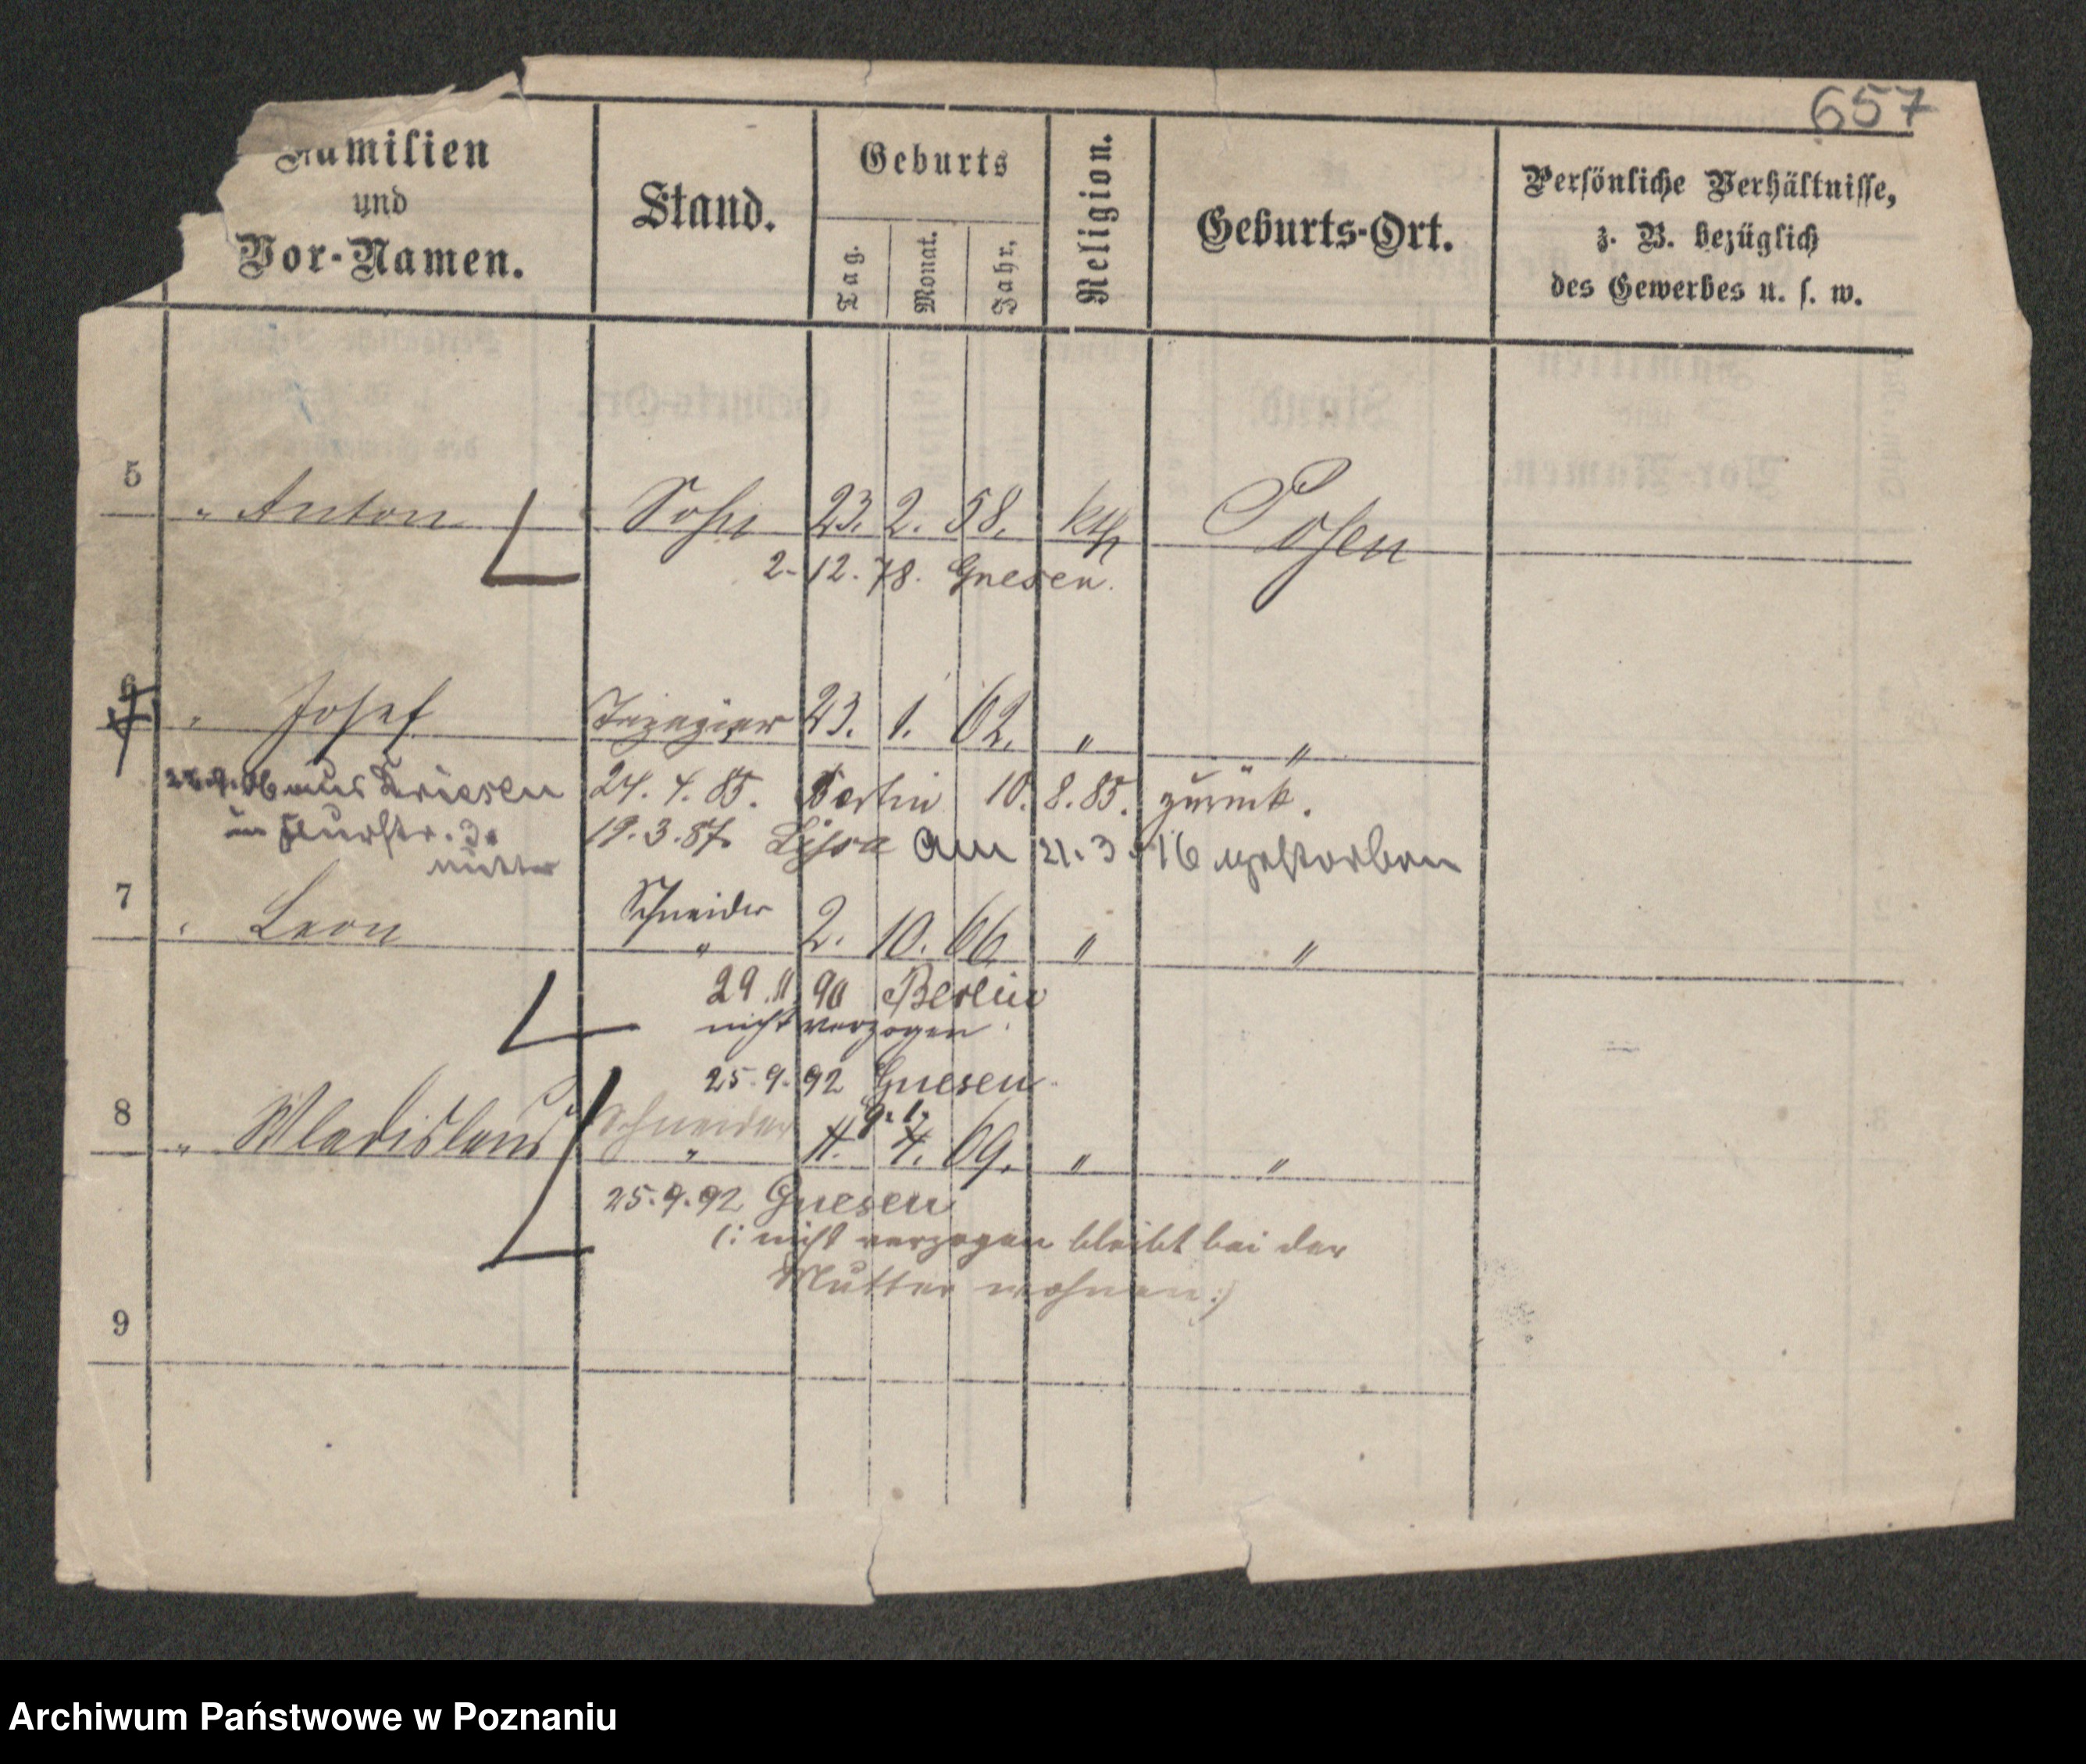 657
Familien
und
Vor-Namen.
Stand.
Geburts
Tag.
Monat.
Jahr.
Religion.
Geburts-Ort.
Persönliche Verhältnisse,
z. B. bezüglich
des Gewerbes u. s. w.
5 " Anton Sohn 23. 2. 58. kth Posen
2-12.78. Gnesen.
6 " Josef Tapezier 23. 1. 62. " "
aus Kriesen 24. 4. 85. Berlin 10. 8. 85. zurück.
in 19.3.87. Lissa am 21. 3. 16 gestorben
Mutter
7 " Leon Schneider " 2. 10. 66 " "
29. 11 90 Berlin
nicht verzogen.
25.9.92 Gnesen.
9. 1.
8 " Wladislaus Schneider " 11. 4. 69. " "
25.9.92 Gnesen
(: nicht verzogen bleibt bei der
Mutter wohnen :)
9
Archiwum Państwowe w Poznaniu